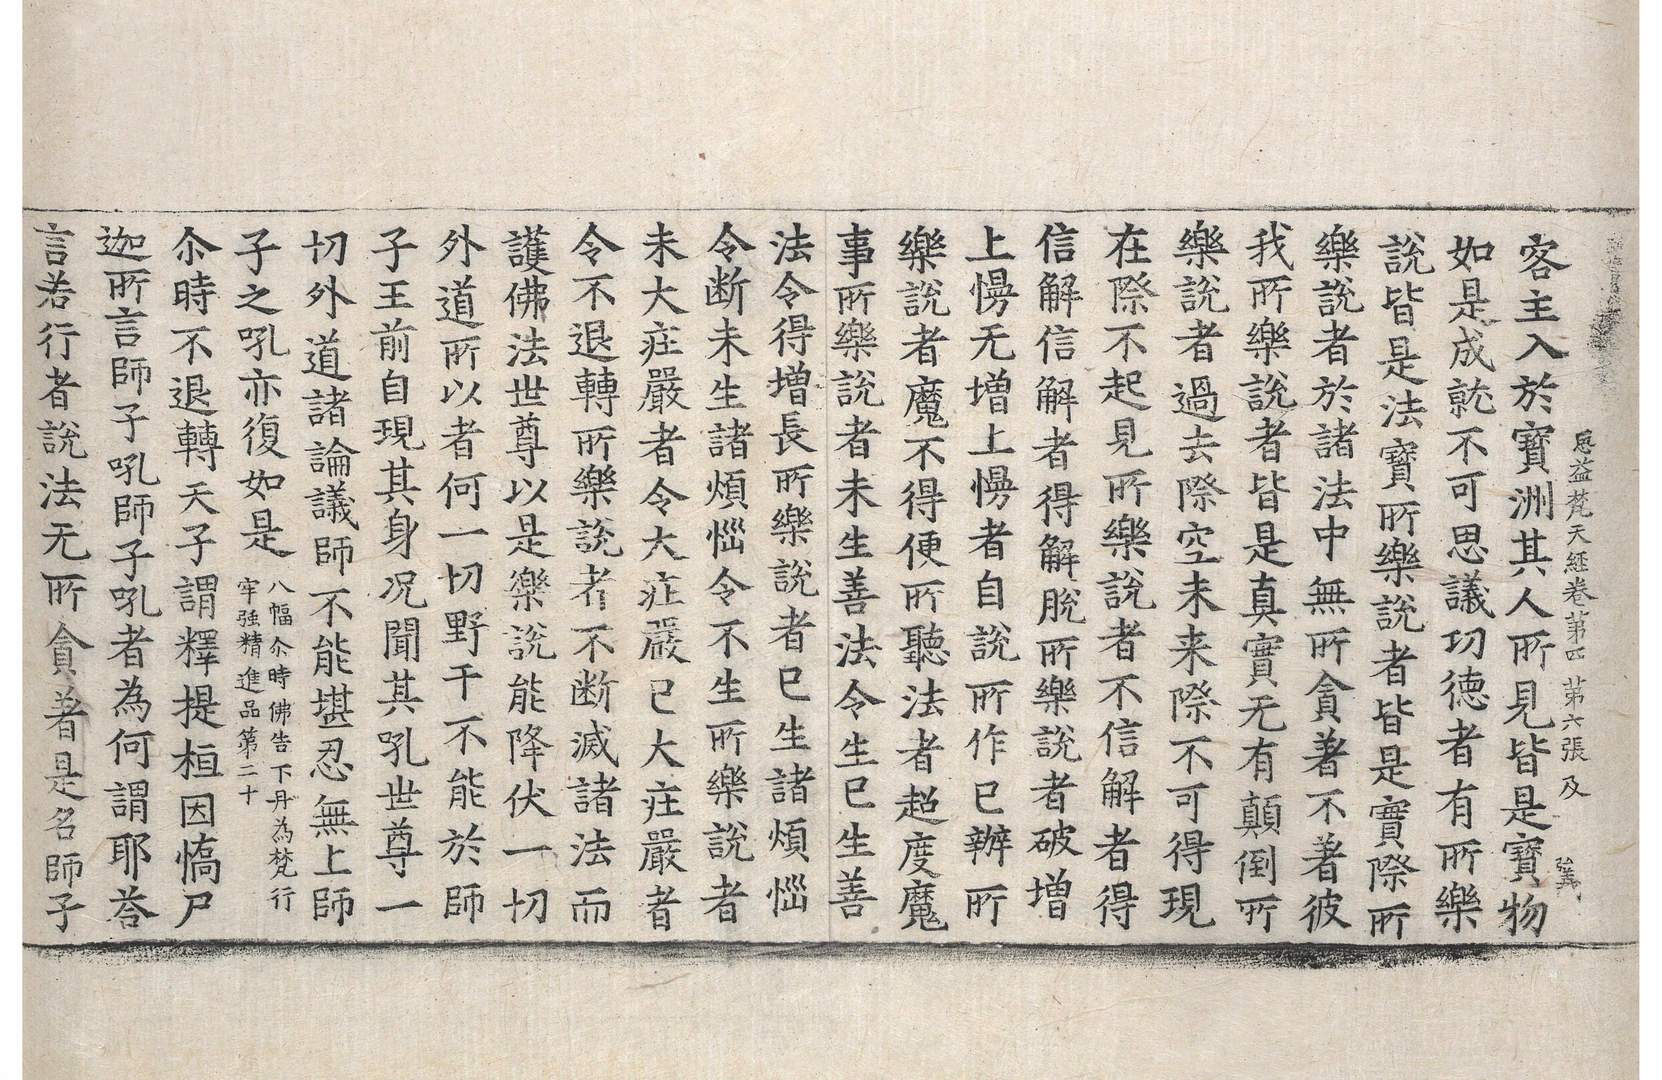 思益梵天經卷第四 第六張 及
客主入於寶洲其人所見皆是寶物
如是成就不可思議功德者有所樂
說皆是法寶所樂說者皆是實際所
樂說者於諸法中無所貪著不著彼
我所樂說者皆是真實无有顛倒所
樂說者過去際空未来際不可得現
在際不起見所樂說者不信解者得
信解信解者得解脫所樂說者破增
上慢无增上慢者自說所作已辦所
樂說者魔不得便所聽法者超度魔
事所樂說者未生善法令生已生善
法令得增長所樂說者已生諸煩惱
令断未生諸煩惱令不生所樂說者
未大庄嚴者令大庄嚴已大庄嚴者
令不退轉所樂說者不断滅諸法而
護佛法世尊以是樂說能降伏一切
外道所以者何一切野干不能於師
子王前自現其身况聞其吼世尊一
切外道諸論議師不能堪忍無上師
子之吼亦復如是
八幅尒時佛告下丹為梵行
牢强精進品第二十
尒時不退轉天子謂釋提桓因憍尸
迦所言師子吼師子吼者為何謂耶荅
言若行者說法无所貪著是名師子